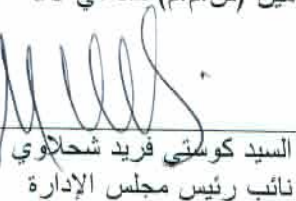 السيد كوستي فريد شحلاوي
نائب رئيس مجلس الإدارة